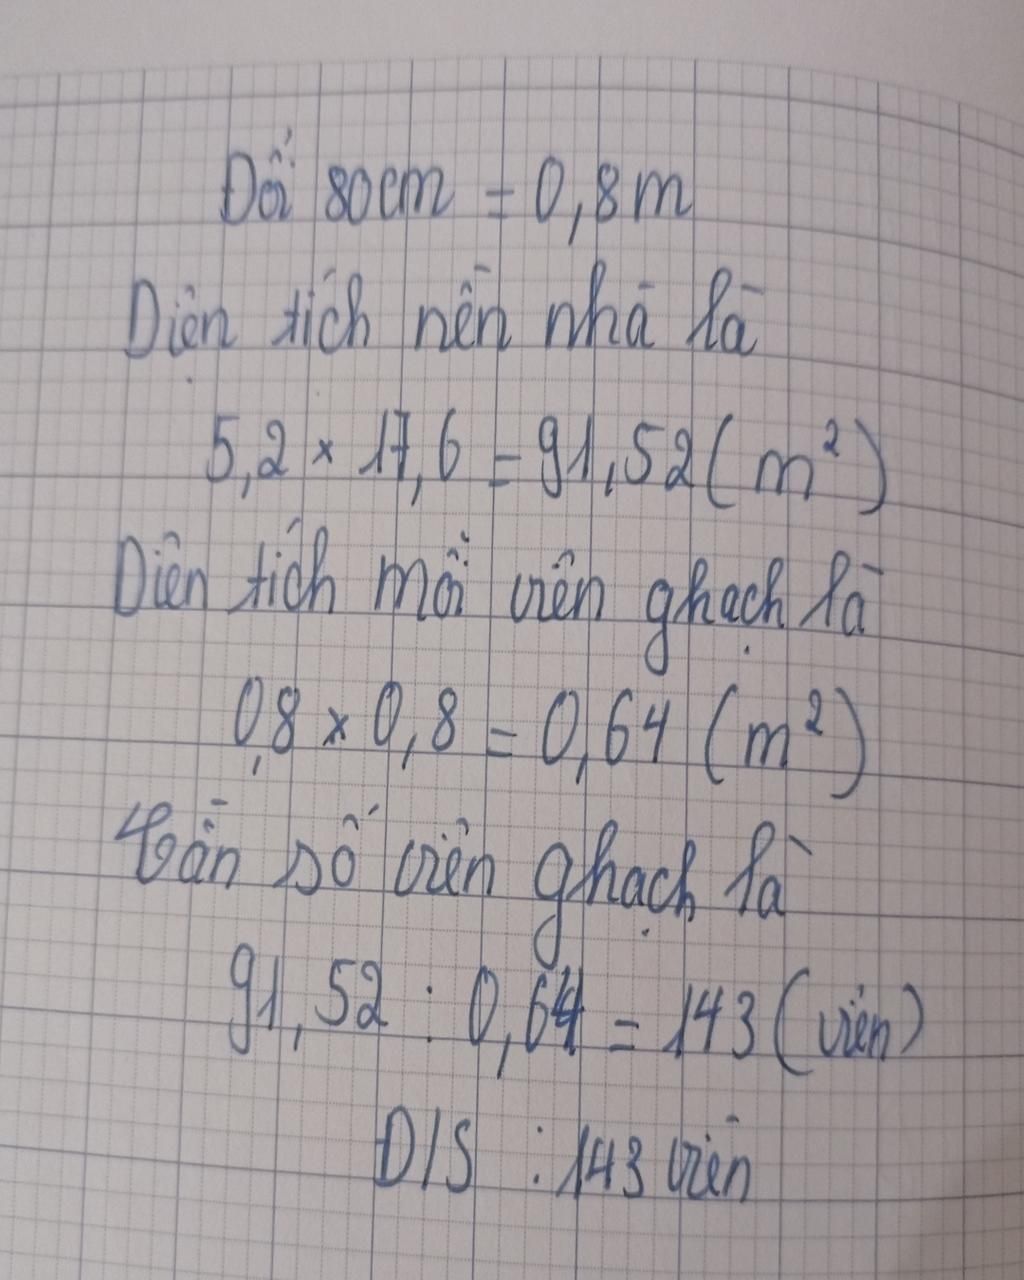 Đổi 80cm = 0,8m
Diện tích nền nhà là
5,2 × 17,6 = 91,52 (m²)
Diện tích mỗi viên ghạch là
0,8 × 0,8 = 0,64 (m²)
Cần số viên ghạch là
91,52 : 0,64 = 143 (viên)
Đ/S : 143 viên